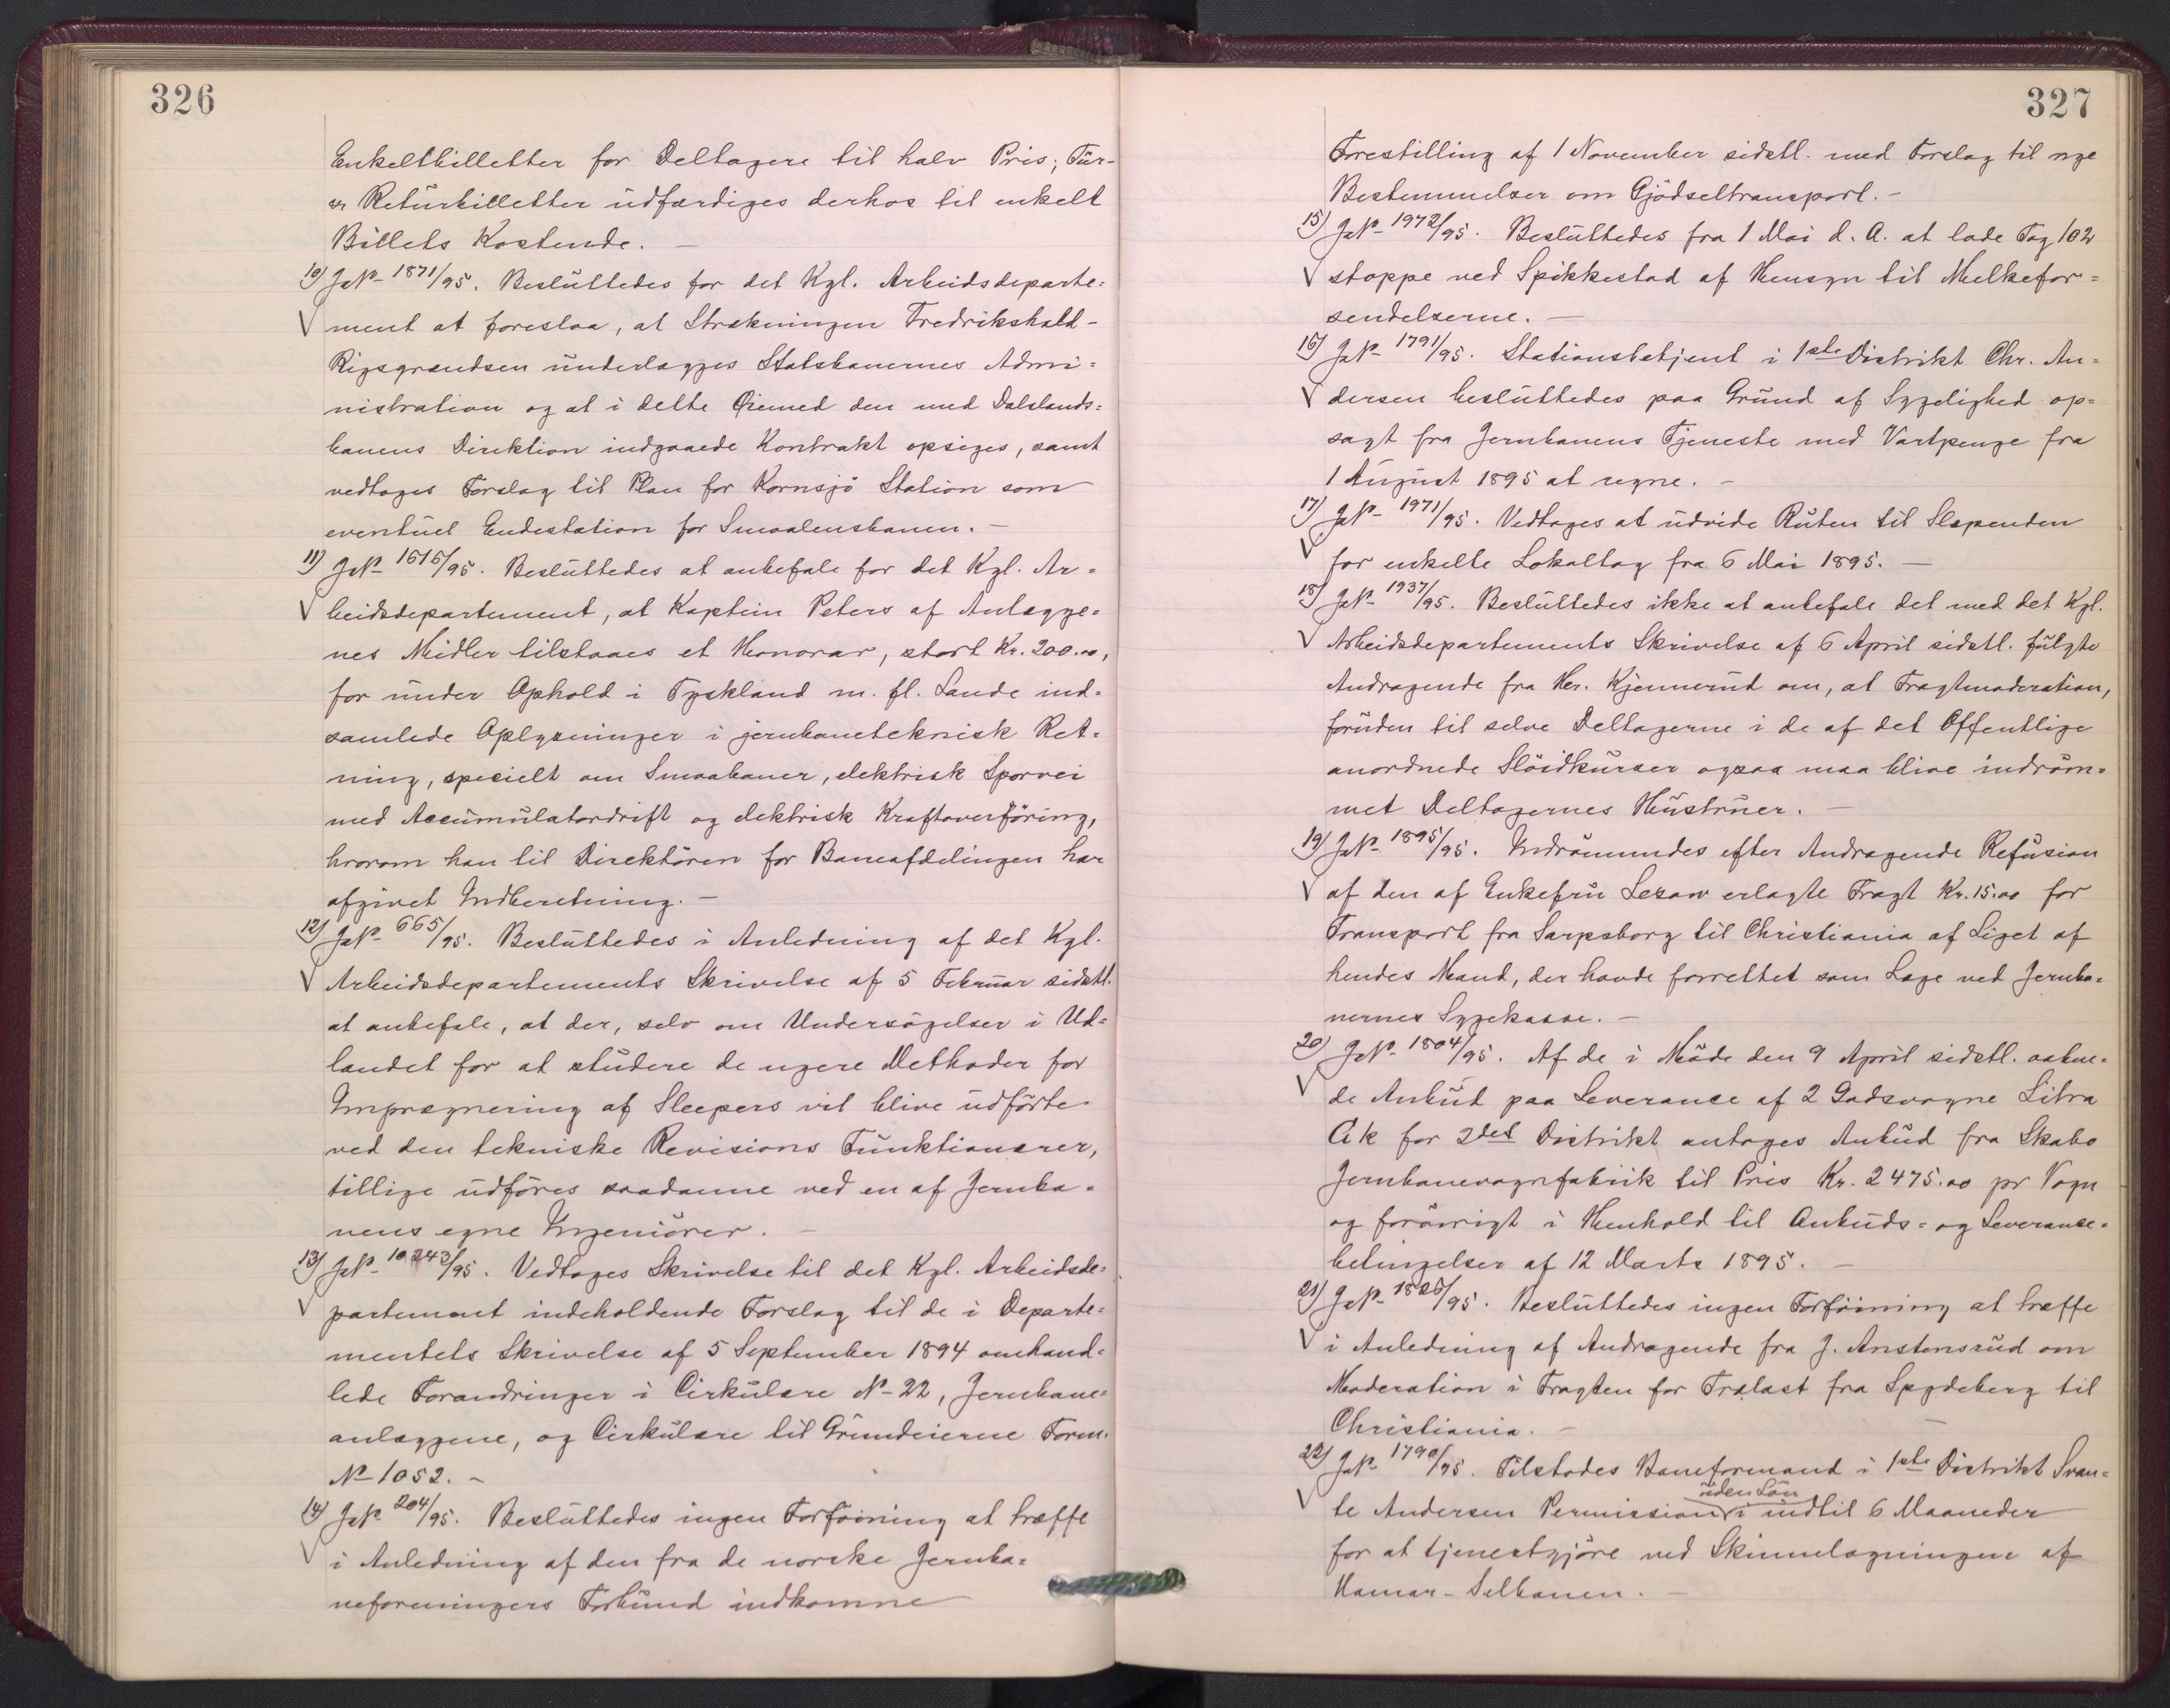 326
Enkeltbilletter for Deltagere til halv Pris; Tur-
og Returbilletter udfærdiges derhos til enkelt
Billets Kostende. —
10) J.N° 1871/95. Besluttedes for det Kgl. Arbeidsdeparte=
V ment at foreslaa, at Strækningen Fredrikshald-
Rigsgrændsen underlægges Statsbanernes Admi=
nistration og at i dette Øiemed den med Dalslands=
banens Direktion indgaaede Kontrakt opsiges, samt
vedtoges Forslag til Plan for Kornsjö Station som
eventuel Endestation for Smaalensbanen. —
11) J.N° 1615/95. Besluttedes at anbefale for det Kgl. Ar=
V beidsdepartement, at Kaptein Peters af Anlægge=
nes Midler tilstaaes et Honorar, stort Kr. 200.00,
for under Ophold i Tyskland m. fl. Lande ind=
samlede Oplysninger i jernbaneteknisk Ret=
ning, specielt om Smaabaner, elektrisk Sporvei
med Accumulatordrift og elektrisk Kraftoverföring,
hvorom han til Direktören for Baneafdelingen har
afgivet Indberetning. —
12) J.N° 665/95. Besluttedes i Anledning af det Kgl.
V Arbeidsdepartements Skrivelse af 5 Februar sidstl.
at anbefale, at der, selv om Undersögelser i Ud=
landet for at studere de nyere Methoder for
Imprægnering af Sleepers vil blive udförte
ved den tekniske Revisions Funktionærer,
tillige udföres saadanne ved en af Jernba=
nens egne Ingeniörer. —
13) J.N° 10243/95. Vedtoges Skrivelse til det Kgl. Arbeidsde=
V partement indeholdende Forslag til de i Departe=
mentets Skrivelse af 5 September 1894 omhand=
lede Forandringer i Cirkulære N° 22, Jernbane=
anlæggene, og Cirkulære til Grundeierne Form.
N° 1052. —
14) J.N° 204/95. Besluttedes ingen Forföining at træffe
V i Anledning af den fra de norske Jernba=
neforeningers Forbund indkomne
327
Forestilling af 1 November sidstl. med Forslag til nye
Bestemmelser om Gjödseltransport. —
15) J.N° 1972/95. Besluttedes fra 1 Mai d. A. at lade Tog 102
V stoppe ved Spikkestad af Hensyn til Melkefor=
sendelserne. —
16) J.N° 1791/95. Stationsbetjent i 1ste Distrikt Chr. An=
V dersen besluttedes paa Grund af Sygelighed op=
sagt fra Jernbanens Tjeneste med Vartpenge fra
1 August 1895 at regne. —
17) J.N° 1971/95. Vedtoges at udvide Ruten til Slependen
V for enkelte Lokaltog fra 6 Mai 1895. —
18) J.N° 1937/95. Besluttedes ikke at anbefale det med det Kgl.
V Arbeidsdepartements Skrivelse af 6 April sidstl. fulgte
Andragende fra Hr. Kjennerud om, at Fragtmoderation,
foruden til selve Deltagerne i de af det Offentlige
anordnede Slöidkurser ogsaa maa blive indröm=
met Deltagernes Hustruer. —
19) J.N° 1895/95. Indrömmedes efter Andragende Refusion
V af den af Enkefru Lesaw erlagte Fragt Kr. 15.00 for
Transport fra Sarpsborg til Christiania af Liget af
hendes Mand, der havde forrettet som Læge ved Jernba=
nernes Sygekasse. —
20) J.N° 1804/95. Af de i Möde den 9 April sidstl. aabne=
V de Anbud paa Leverance af 2 Godsvogne Litra
Gk for 2det Distrikt antoges Anbud fra Skabo
Jernbanevognfabrik til Pris Kr. 2475.00 pr Vogn
og forövrigt i Henhold til Anbuds= og Leverance=
betingelser af 12 Marts 1895. —
21) J.N° 1826/95. Besluttedes ingen Forföining at træffe
V i Anledning af Andragende fra J. Anstensrud om
Moderation i Fragten for Trælast fra Spydeberg til
Christiania. —
22) J.N° 1790/95. Tilstodes Baneformand i 1ste Distrikt Svan=
uden Lön
V te Andersen Permission i indtil 6 Maaneder
for at tjenestgjöre ved Skinnelægningen af
Hamar-Selbanen. —